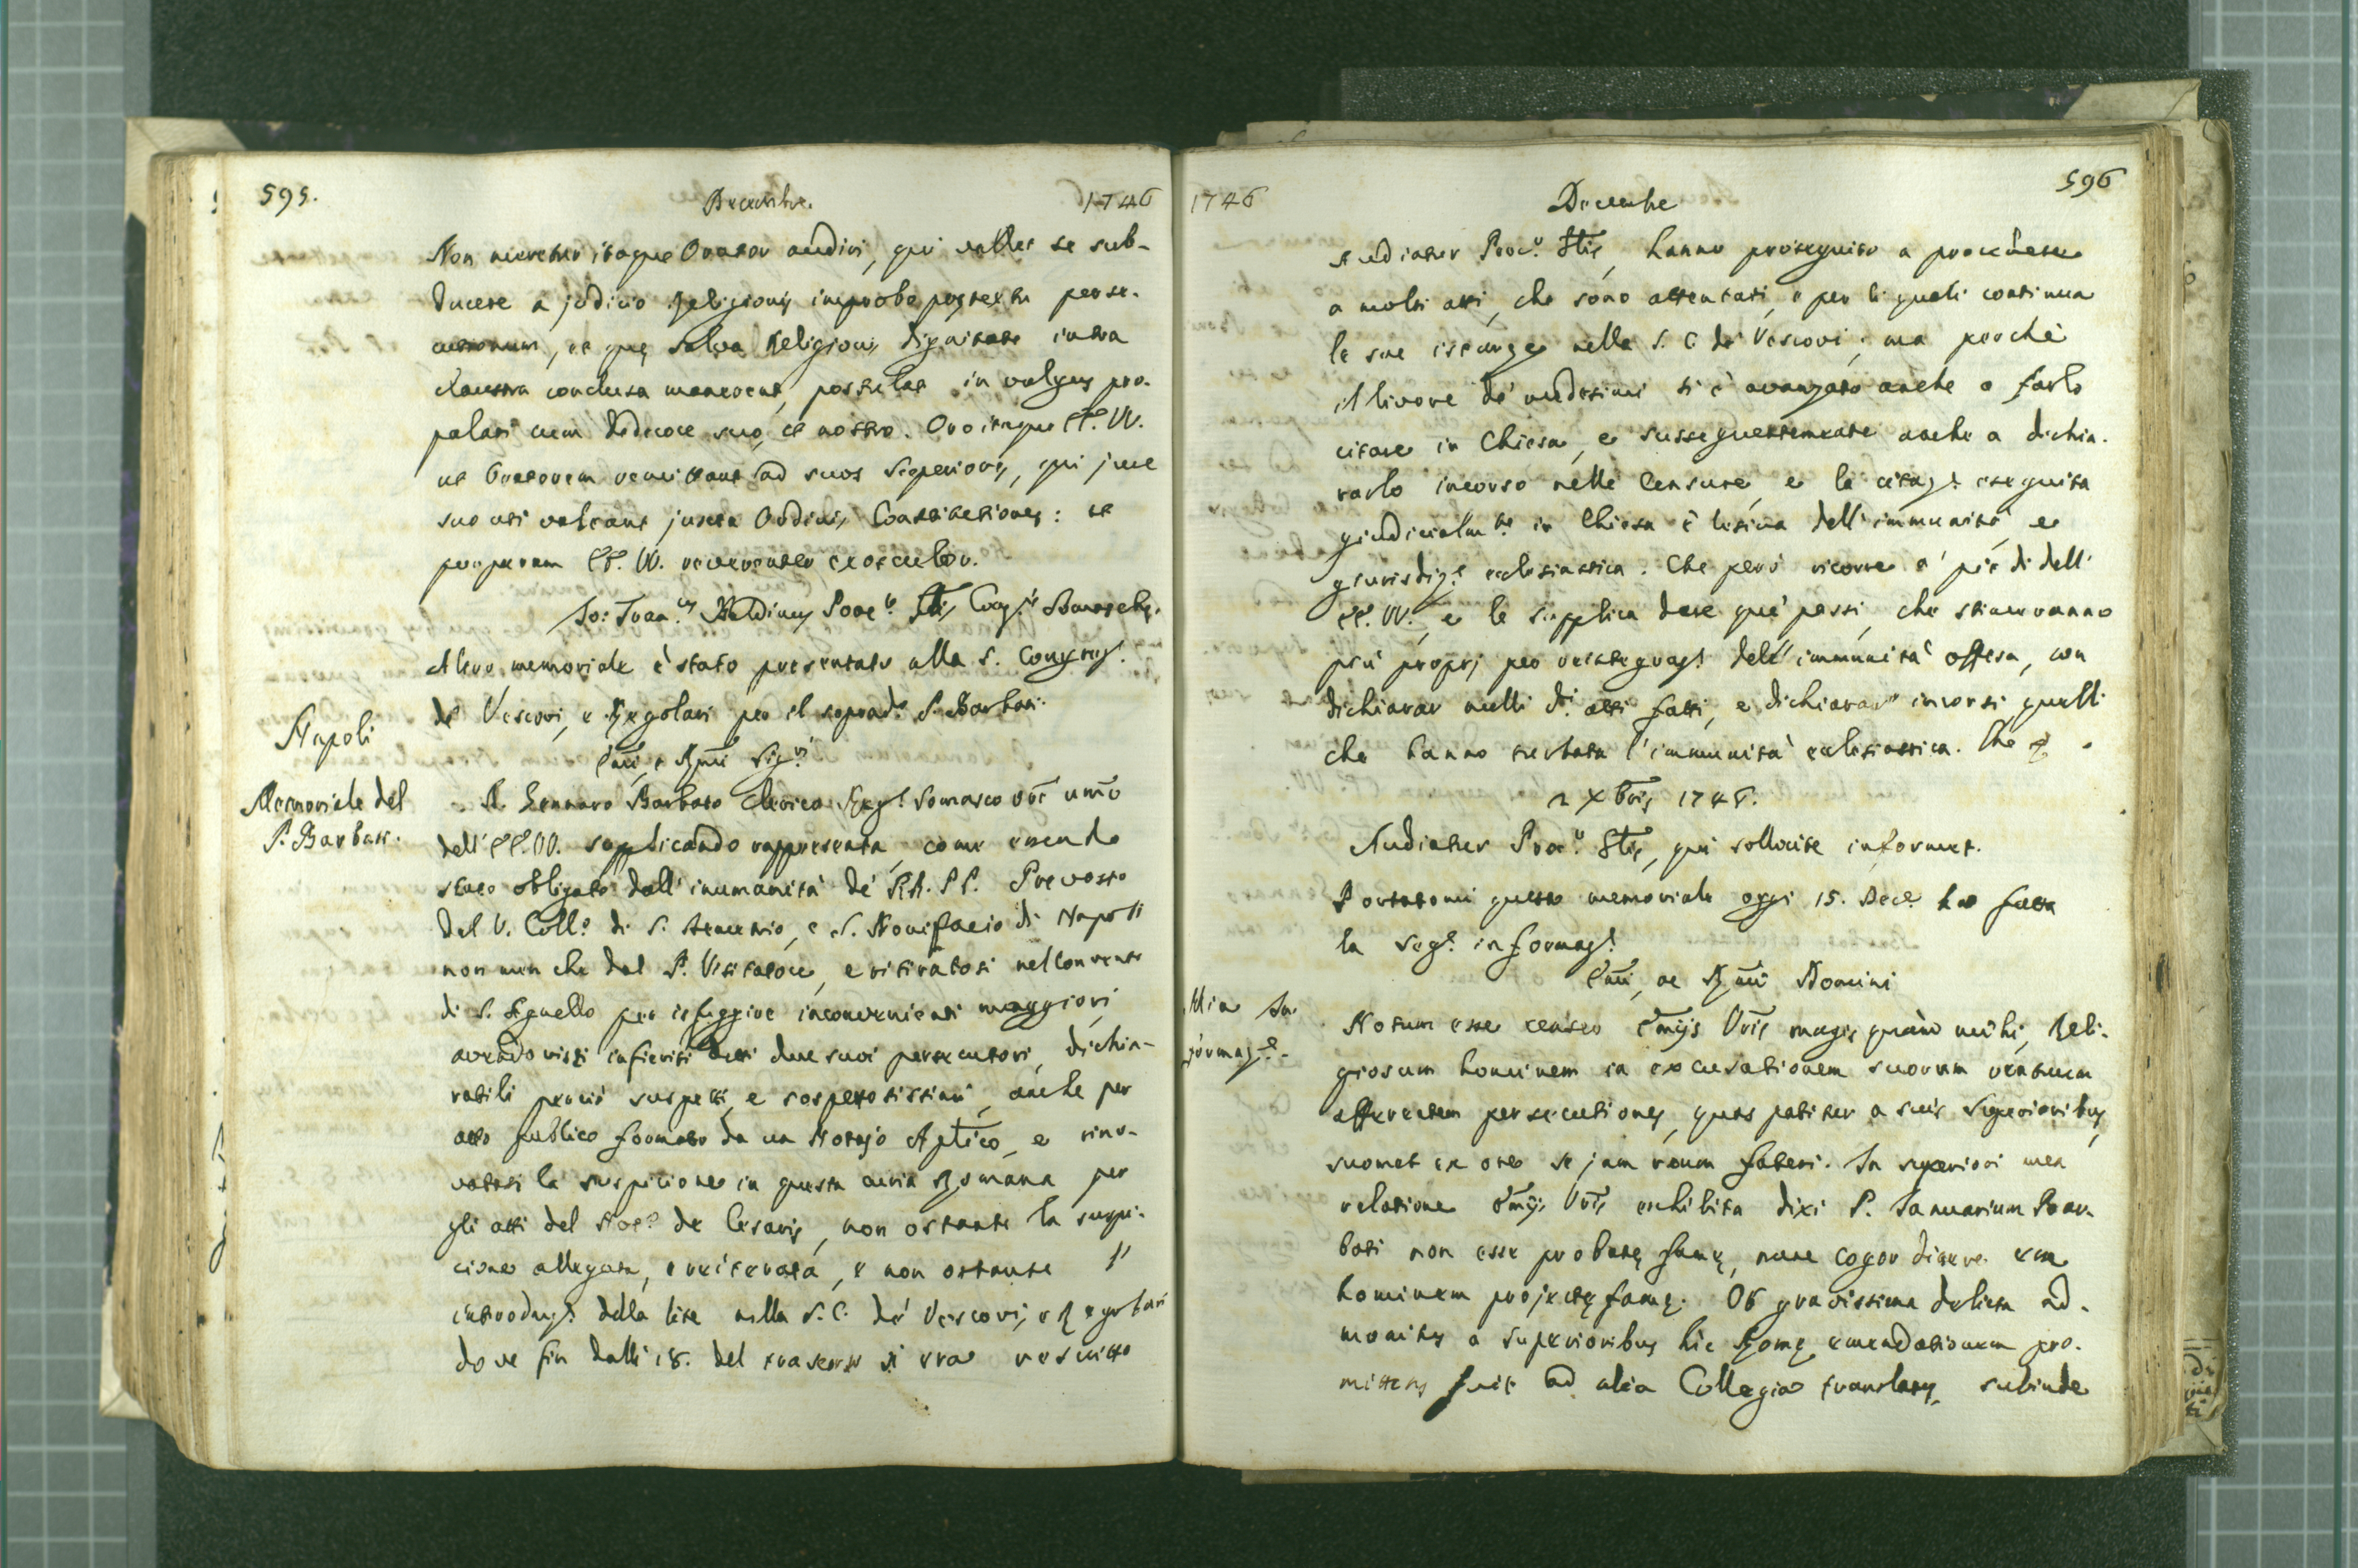 595.
Decembre.
1746
Non meretur itaque Orator audiri, qui vellet se sub-
ducere a judicio Religionis improbo pretextu perse-
cutionum, et quę salva Religionis dignitate intra
claustra conclusa manerent, postulat in vulgus pro-
palari cum dedecore suo, et nostro. Oro itaque EE. VV.
ut Oratorem remittant ad suos Superiores, qui jure
suo uti valeant juxta Ordinis Constitutiones: et
purpuram EE. VV. reverenter exosculor.
Jo: Fran.cus Baldinus Proc.r Glis Cong.nis Somaschę.
Altro memoriale è stato presentato alla S. Congreg.e
de' Vescovi, e Regolari per il soprad.o P. Barbati.
Napoli
Emi, e Rmi Sig.ri
Memoriale del
P. Barbati.
D. Gennaro Barbato Chierico Reg.e Somasco Ore umo
dell' EE. VV. supplicando rappresenta, come essendo
stato obligato dall' inumanità de' RR. PP. Prevosto
del V. Coll.o di S. Demetrio, e S. Bonifacio di Napoli
non men che dal P. Visitatore, e ritiratosi nel Convento
di S. Agnello per isfuggire inconvenienti maggiori,
avendo visti infieriti detti due suoi persecutori, dichia-
ratili perciò suspetti, e sospettosissimi, anche per
atto publico formato da un Notajo Aplico, e rino-
vatasi la suspicione in questa curia Romana per
gli atti del Not.o de Cesaris, non ostante la suspi-
cione allegata, e reiterata, e non ostante l'
introduz.e della lite nella S. C. de' Vescovi, e Regolari
dove fin dalli 18. del trascorso si era rescritto
1746
Decembre
596
Audiatur Proc.r Glis, hanno proseguito a procedere
a molti atti, che sono attentati, e per li quali continua
le sue istanze nella S. C. de' Vescovi; ma perchè
il livore de' medesimi si è avanzato anche a farlo
citare in Chiesa, e susseguentemente anche a dichia-
rarlo incorso nelle Censure, e la citaz.e eseguita
giudicialm.te in Chiesa è lesiva dell' immunità, e
giurisdiz.e ecclesiastica. Che però ricorre a' piedi dell'
EE. VV., e le supplica dare que' passi, che stimeranno
più proprj per reintegraz.e dell' immunità offesa, con
dichiarar nulli d.i atti fatti, e dichiarar incorsi quelli
che hanno turbata l'immunità ecclesiastica. Che
2 Xbris 1746.
Audiatur Proc.r Glis, qui sollicite informet.
Portatomi questo memoriale oggi 15. Dec.e ho fatta
la seg.e informaz.e
Emi, ac Rmi Domini
Mia In-
formaz.e
Notum esse censeo Emijs Vris magis quàm mihi, Reli-
giosum hominem in excusationem suorum reatuum
afferentem persecutiones, quas patitur a suis Superioribus,
suomet ex ore se jam reum fateri. In superiori mea
relatione Emijs Vris exhibita dixi P. Januarium Bar-
bati non esse probatę famę, nunc cogor dicere eum
hominem projectę famę. Ob gravissima delicta ad-
monitus a superioribus hic Romę, emendationem pro-
mittens fuit ad alia Collegia translatus, subinde